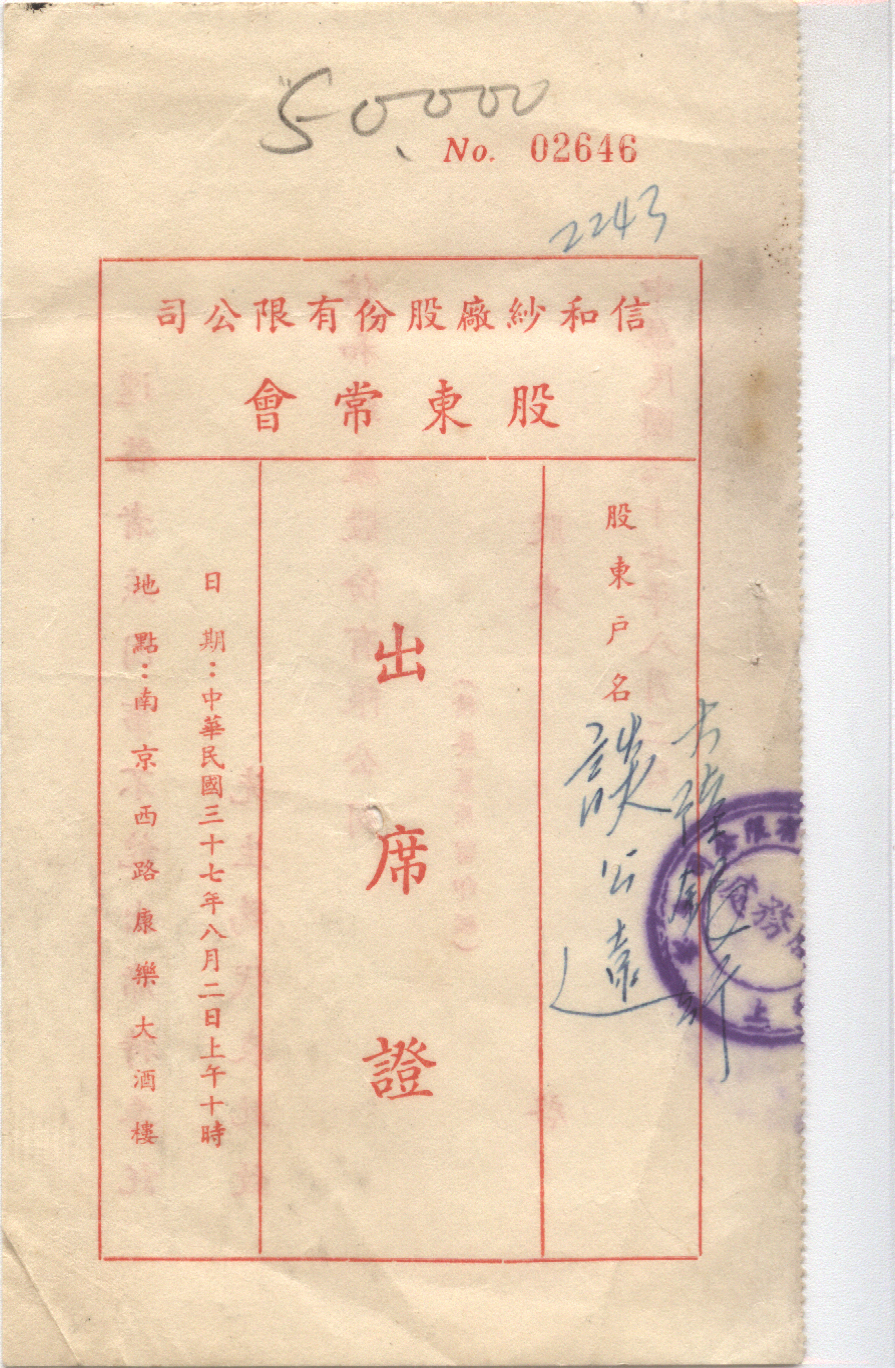 50,000
No. 02646
2243
信和紗廠股份有限公司
股東常會
股東戶名
談公遠
出席證
日期：中華民國三十七年八月二日上午十時
地點：南京西路康樂大酒樓